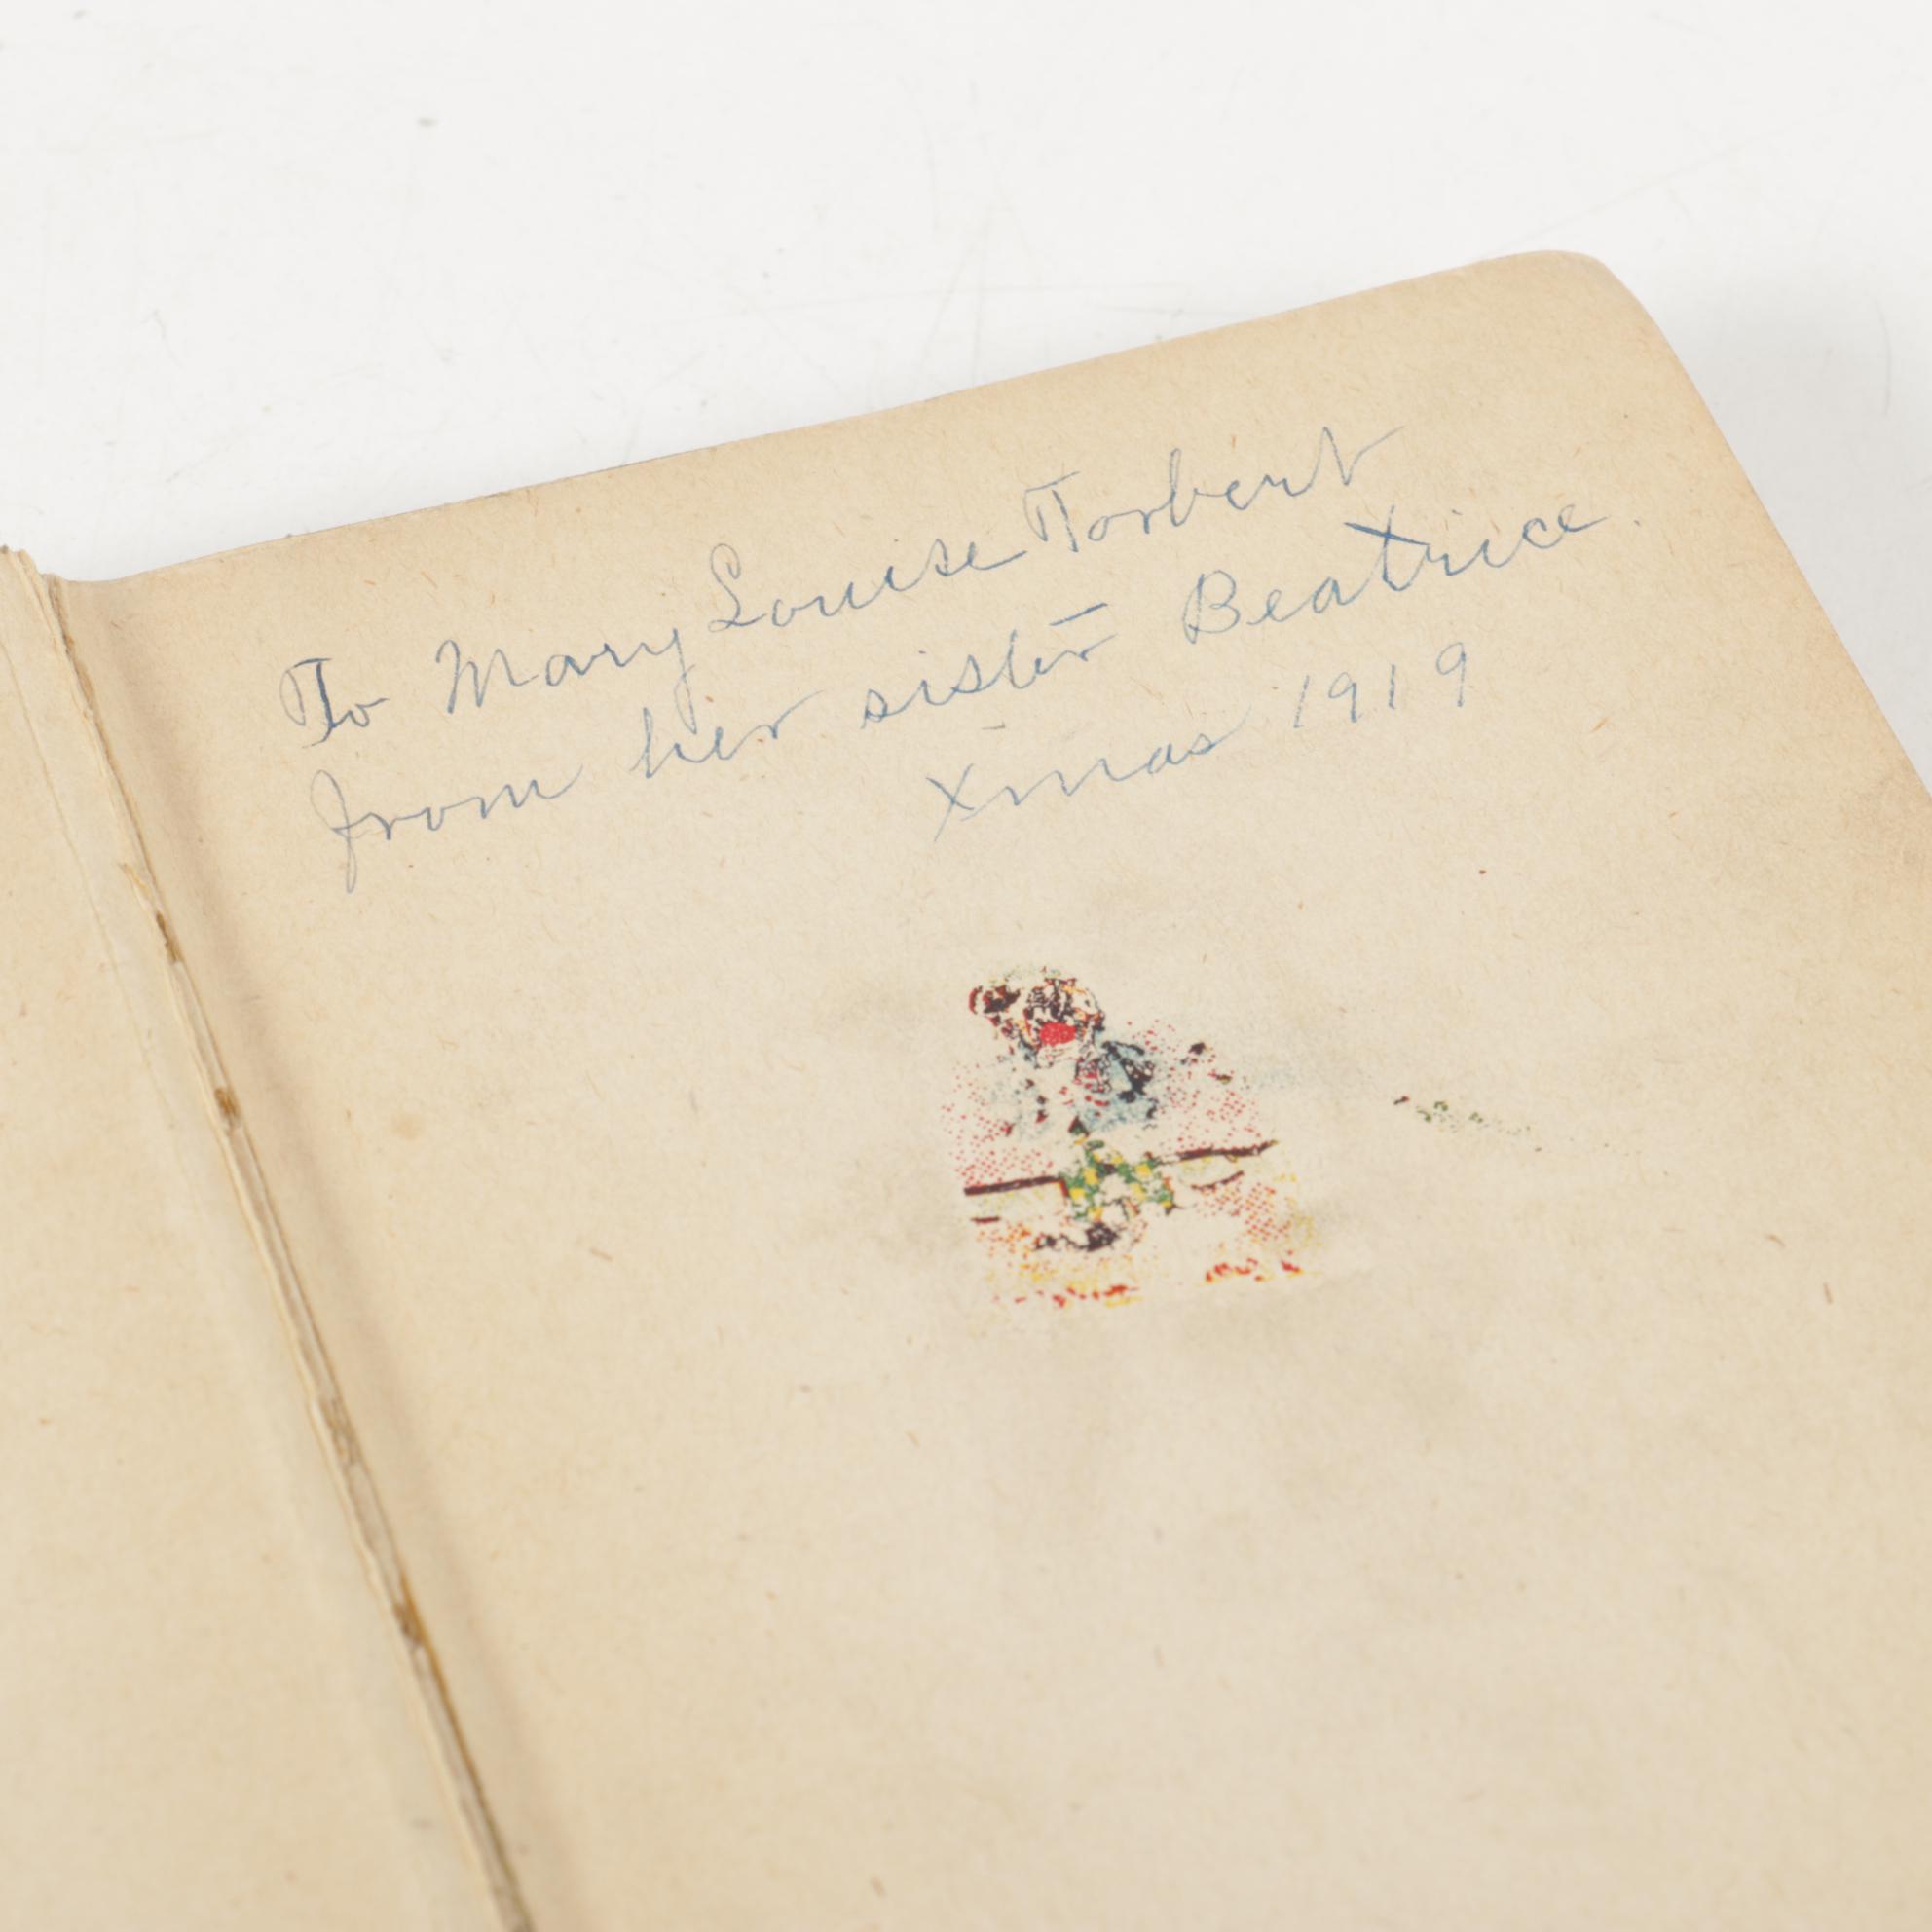 To Mary Louise Torbert
from her sister Beatrice.
Xmas 1919